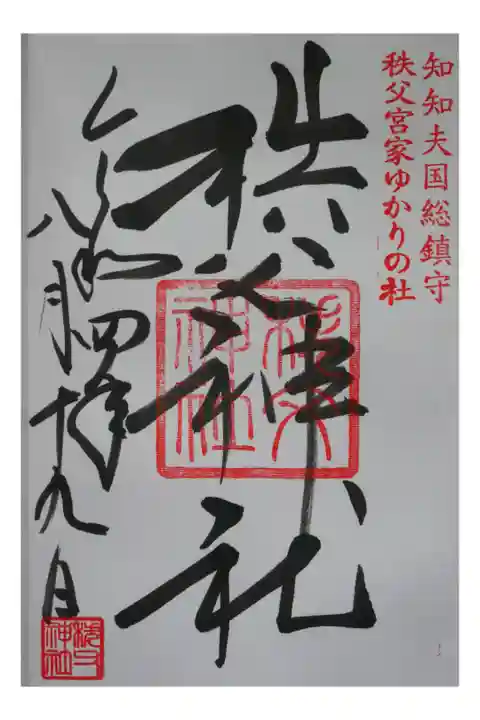 知知夫国総鎮守
秩父宮家ゆかりの社
秩父神社
秩父神社
令和四年
八月十九日
秩父神社